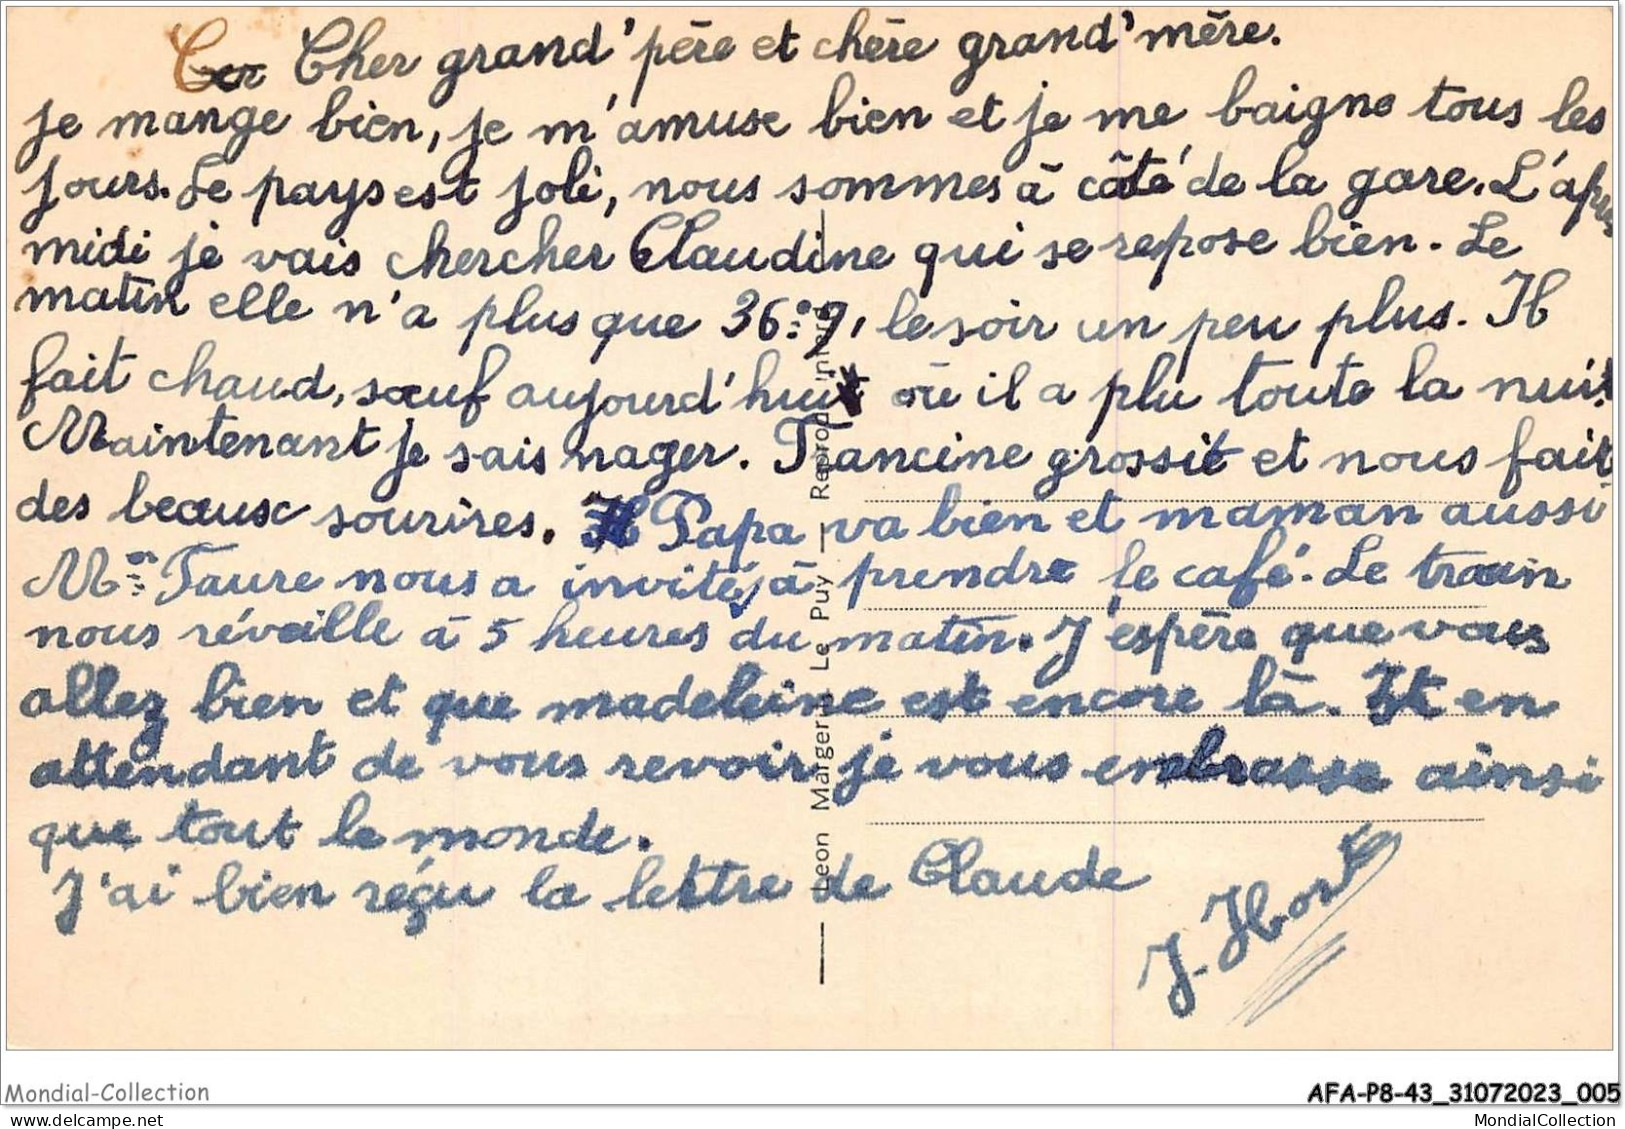 Cher Cher grand'père et chère grand'mère.
je mange bien, je m'amuse bien et je me baigne tous les
jours. Le pays est joli, nous sommes à côté de la gare. L'après
midi je vais chercher Claudine qui se repose bien. Le
matin elle n'a plus que 36°9, le soir un peu plus. Il
fait chaud, sauf aujourd'hui où il a plu toute la nuit.
Maintenant je sais nager. Francine grossit et nous fait
des beaux sourires. Papa va bien et maman aussi
Mme Faure nous a invités à prendre le café. Le train
nous réveille à 5 heures du matin. J'espère que vous
allez bien et que madeleine est encore là. Et en
attendant de vous revoir je vous embrasse ainsi
que tout le monde.
J'ai bien reçu la lettre de Claude
Leon Margerit Le Puy — Reprod. interd.
Mondial-Collection
AFA-P8-43_31072023_005
MondialCollection